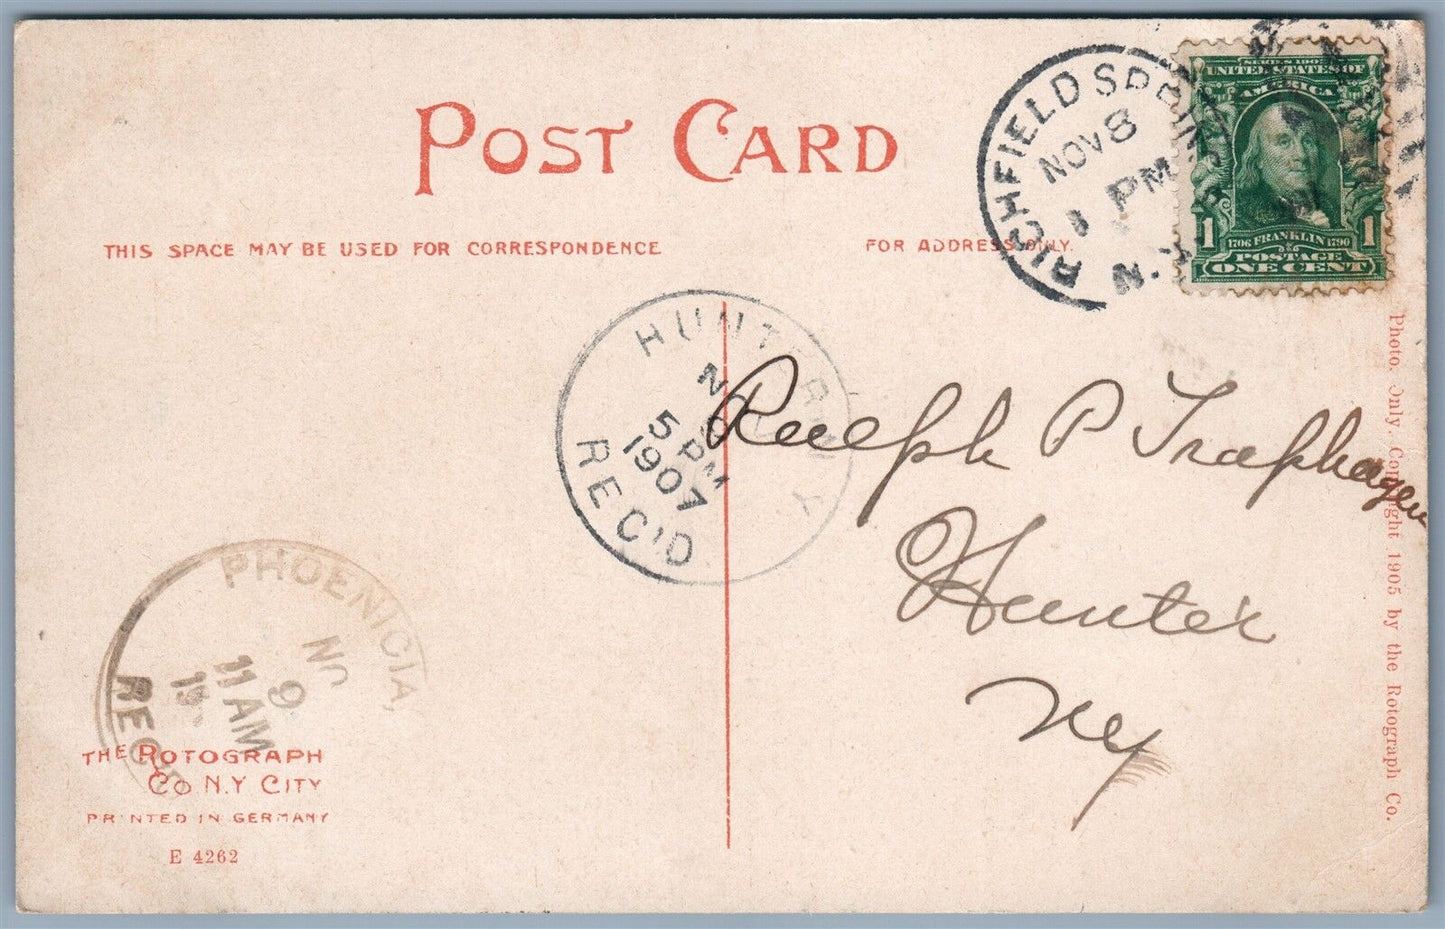 POST CARD
THIS SPACE MAY BE USED FOR CORRESPONDENCE
FOR ADDRESS ONLY.
RICHFIELD SPRINGS
NOV 8
1 PM
N.Y.
SERIES 1902
UNITED STATES OF
AMERICA
1 1
1706 FRANKLIN 1790
POSTAGE
ONE CENT
HUNTER
NOV
5 PM
1907
N Y
REC'D
Ralph P Traphagen
Hunter
NY
PHOENICIA,
NO
9
11 AM
19
REC'
THE ROTOGRAPH
CO N.Y CITY
PRINTED IN GERMANY
E 4262
Photo. Only. Copyright 1905 by the Rotograph Co.